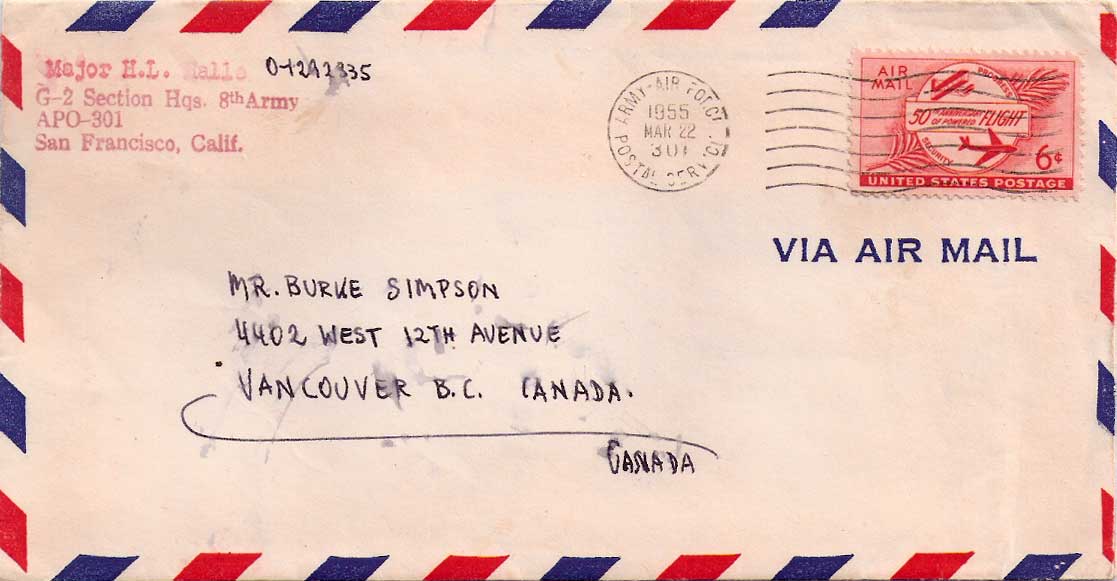 Major H.L. Halls O-1292335
G-2 Section Hqs. 8th Army
APO-301
San Francisco, Calif.
ARMY-AIR FORCE
1955
MAR 22
301
POSTAL SERVICE
AIR
MAIL
PROGRESS
50TH ANNIVERSARY OF POWERED FLIGHT
SECURITY
6¢
UNITED STATES POSTAGE
VIA AIR MAIL
MR. BURKE SIMPSON
4402 WEST 12TH AVENUE
VANCOUVER B.C. CANADA.
CANADA